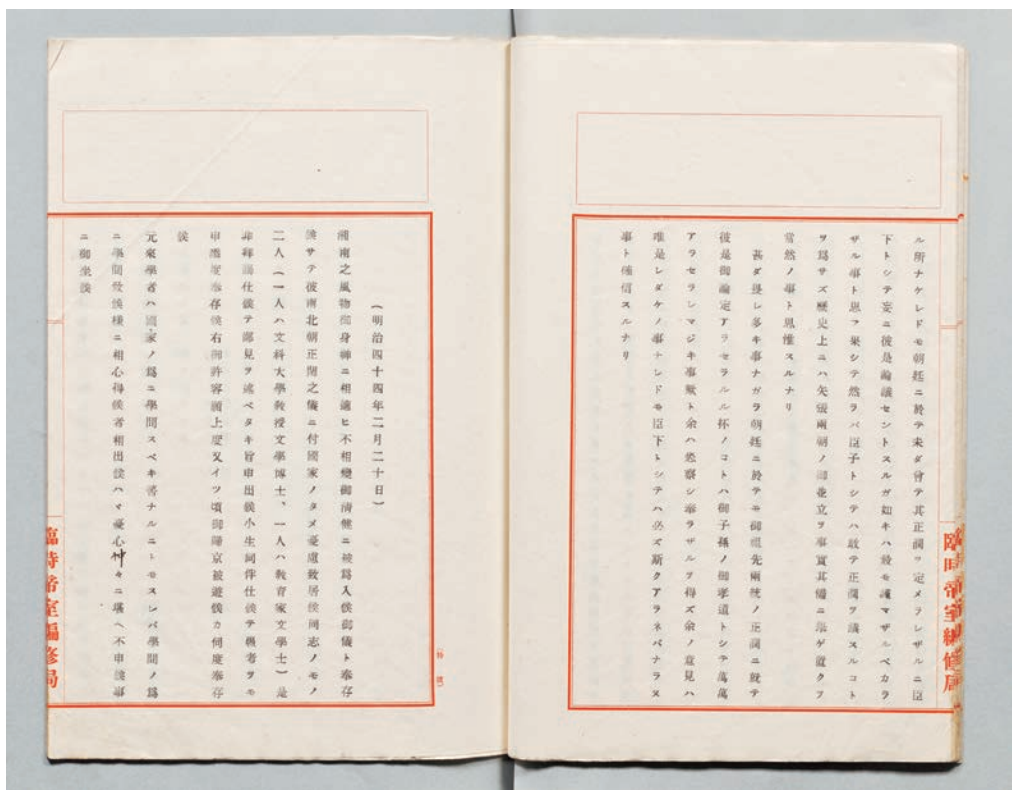 ル所ナケレドモ朝廷ニ於テ未ダ曾テ其正閏ヲ定メラレザルニ臣
下トシテ妄ニ彼是論議セントスルガ如キハ最モ謹マザルベカラ
ザル事ト思フ果シテ然ラバ臣子トシテハ敢テ正閏ヲ議スルコト
ヲ爲サズ歷史上ニハ矢張兩朝ノ御並立ヲ事實其儘ニ擧ゲ置クヲ
當然ノ事ト思惟スルナリ
甚ダ畏レ多キ事ナガラ朝廷ニ於テモ御祖先兩統ノ正閏ニ就テ
彼是御論定アラセラルル抔ノコトハ御子孫ノ御孝道トシテ萬萬
アラセラレマジキ事歟ト余ハ恐察シ奉ラザルヲ得ズ余ノ意見ハ
唯是レダケノ事ナレドモ臣下トシテハ必ズ斯クアラネバナラヌ
事ト確信スルナリ
臨時帝室編修局
(明治四十四年二月二十日)
湘南之風物御身神ニ相適ヒ不相變御淸健ニ被爲入候御儀ト奉存
候サテ彼南北朝正閏之儀ニ付國家ノタメ憂慮致居候同志ノモノ
二人(一人ハ文科大學敎授文學博士、一人ハ敎育家文學士)是
非拜謁仕候テ鄙見ヲ述ベタキ旨申出候小生同伴仕候テ愚者ヲモ
申度奉存候右御許容願上度又イツ頃御歸京被遊候カ伺度奉存
候
元來學者ハ國家ノ爲ニ學問スベキ筈ナルニトモスレバ學問ノ爲
ニ學問致候樣ニ相心得候者相出候ハヾ憂心忡々ニ堪ヘ不申候事
ニ御坐候
臨時帝室編修局